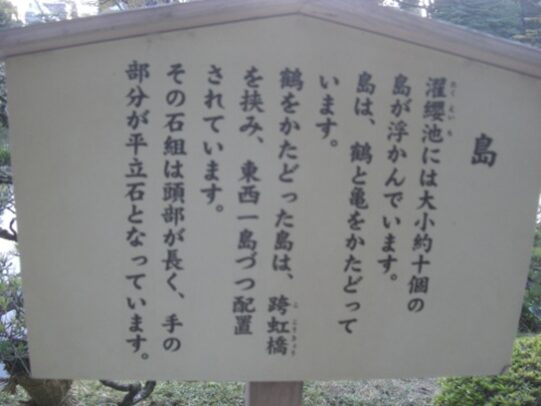 島
濯纓池には大小約十個の
島が浮かんでいます。
島は、鶴と亀をかたどって
います。
鶴をかたどった島は、跨虹橋
を挟み、東西一島づつ配置
されています。
その石組は頭部が長く、手の
部分が平立石となっています。